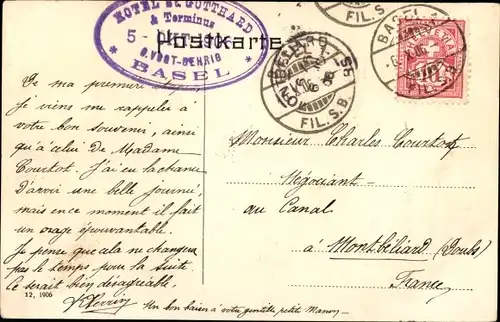 HOTEL St. GOTTHARD
& Terminus
5 - OKT. 1906
G. VOGT-GEHRIG
* BASEL *
Postkarte
FIL. S.B.
BASEL
FIL. S.B.
BASEL
FIL. S.B.
De ma premiere étape,
Je viens me rappeler à
votre bon souvenir, ainsi
qu'à celui de Madame
Courtot. J'ai eu la chance
D'avoir une belle journée,
mais en ce moment il fait
un orage épouvantable.
Je pense que cela ne changera
pas le temps pour la suite
Ce serait bien désagréable.
12, 1906
Un bon baiser à votre gentille petite Manon
Monsieur Charles Courtot
Négociant
au Canal
à Montbéliard (Doubs)
France